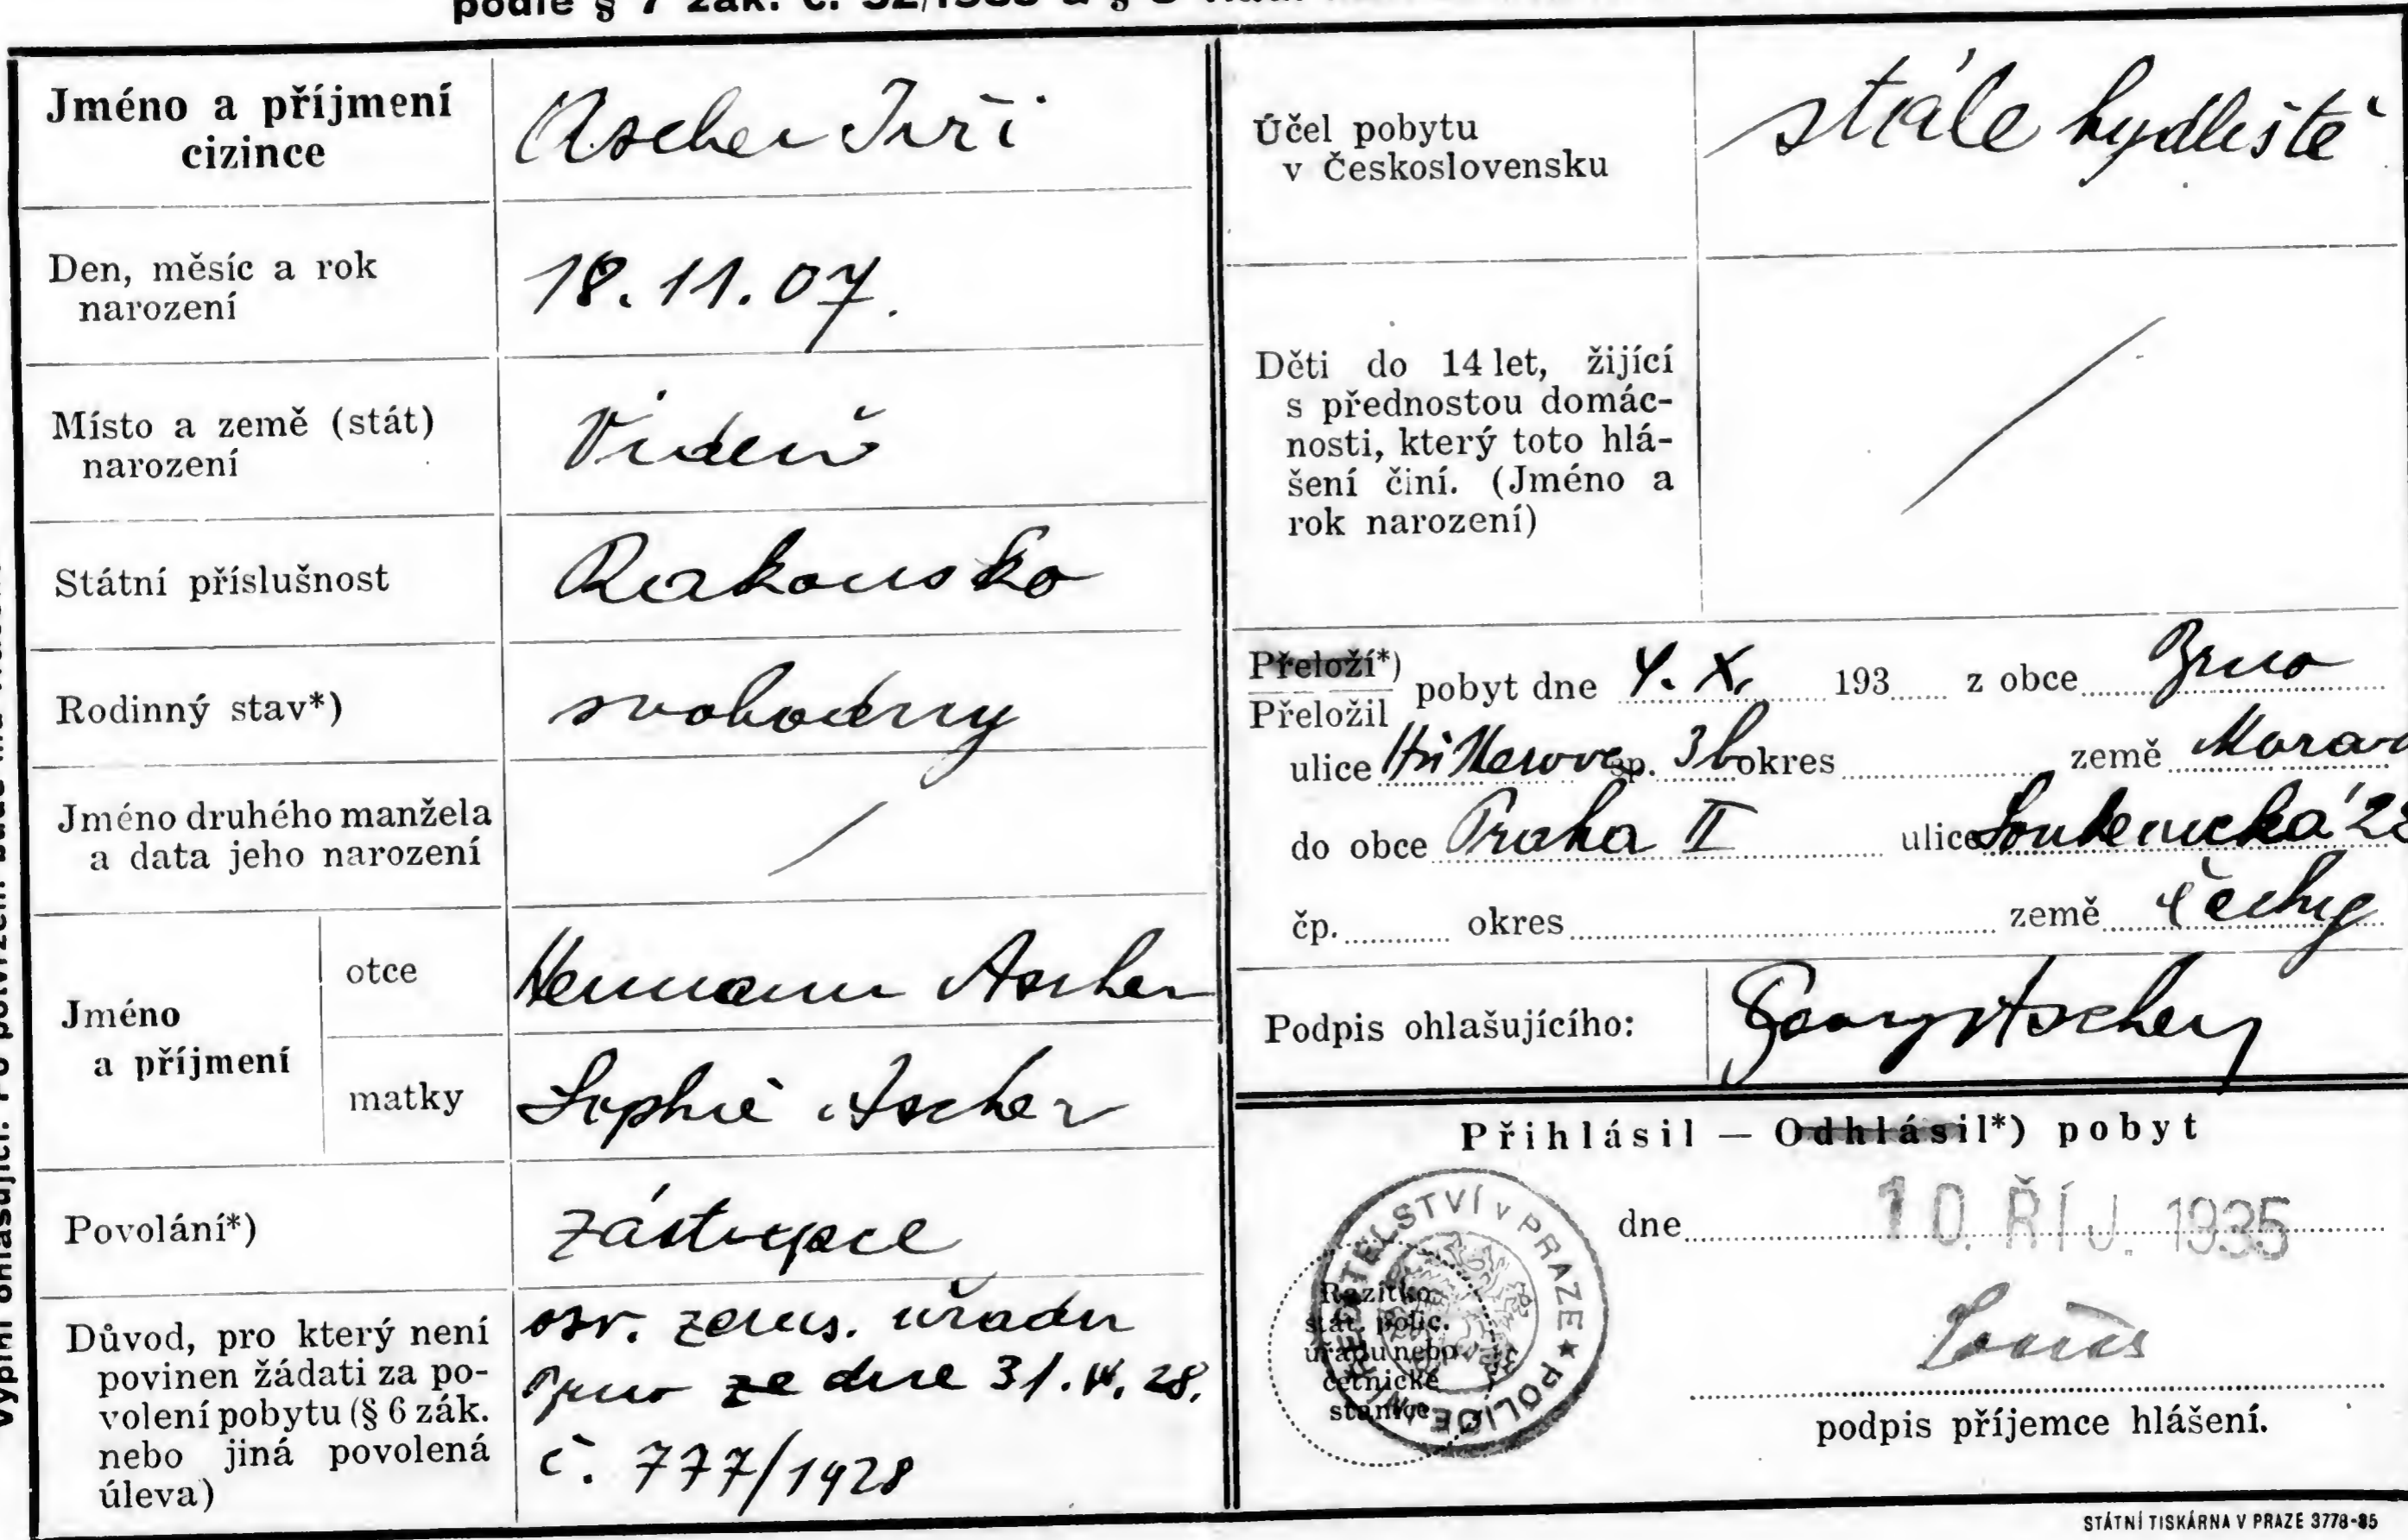 podle § 7 zák. č. 52/1935 a § 8
Jméno a příjmení
cizince
Ascher Jiří
Den, měsíc a rok
narození
18.11.07.
Místo a země (stát)
narození
Vídeň
Státní příslušnost
Rakousko
Rodinný stav*)
svobodny
Jméno druhého manžela
a data jeho narození
/
Jméno
a příjmení
otce
Hermann Ascher
matky
Sophie Ascher
Povolání*)
zástupce
Důvod, pro který není
povinen žádati za po-
volení pobytu (§ 6 zák.
nebo jiná povolená
úleva)
osv. zems. úřadu
Brno ze dne 31. 28.
č. 777/1928
Účel pobytu
v Československu
stálé bydliště
Děti do 14 let, žijící
s přednostou domác-
nosti, který toto hlá-
šení činí. (Jméno a
rok narození)
/
Přeloží*)
Přeložil
pobyt dne 4. X. 193 z obce Brno
ulice čp. 3b okres země Morava
do obce Praha II ulice Soukenická 23
čp. okres země Čechy
Podpis ohlašujícího:
Georg Ascher
Přihlásil — Odhlásil*) pobyt
dne 10. ŘÍJ. 1935
Razítko
stát. polic.
úřadu nebo
četnické
stanice
POLICEJNÍ ŘEDITELSTVÍ v PRAZE ★
podpis příjemce hlášení.
STÁTNÍ TISKÁRNA V PRAZE 3778-35
Vyplní ohlašující. Po potvrzení bude mu